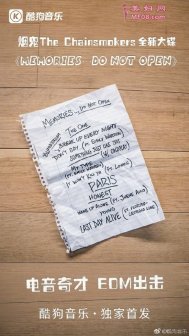 酷狗音乐
美妞网
MF08.com
烟鬼The Chainsmokers全新大碟
《MEMORIES...DO NOT OPEN》
MEMORIES...DO NOT OPEN
THE ONE
BREAK UP EVERY NIGHT
DON'T SAY (FT. EMILY WARREN)
SOMETHING JUST LIKE THIS
MY TYPE (FT. EMILY WARREN)
IT WON'T KILL YA (FT. LOUANE)
PARIS
HONEST
WAKE UP ALONE (FT. JHENÉ AIKO)
YOUNG
LAST DAY ALIVE (FT. FLORIDA GEORGIA LINE)
电音奇才 EDM出击
酷狗音乐·独家首发